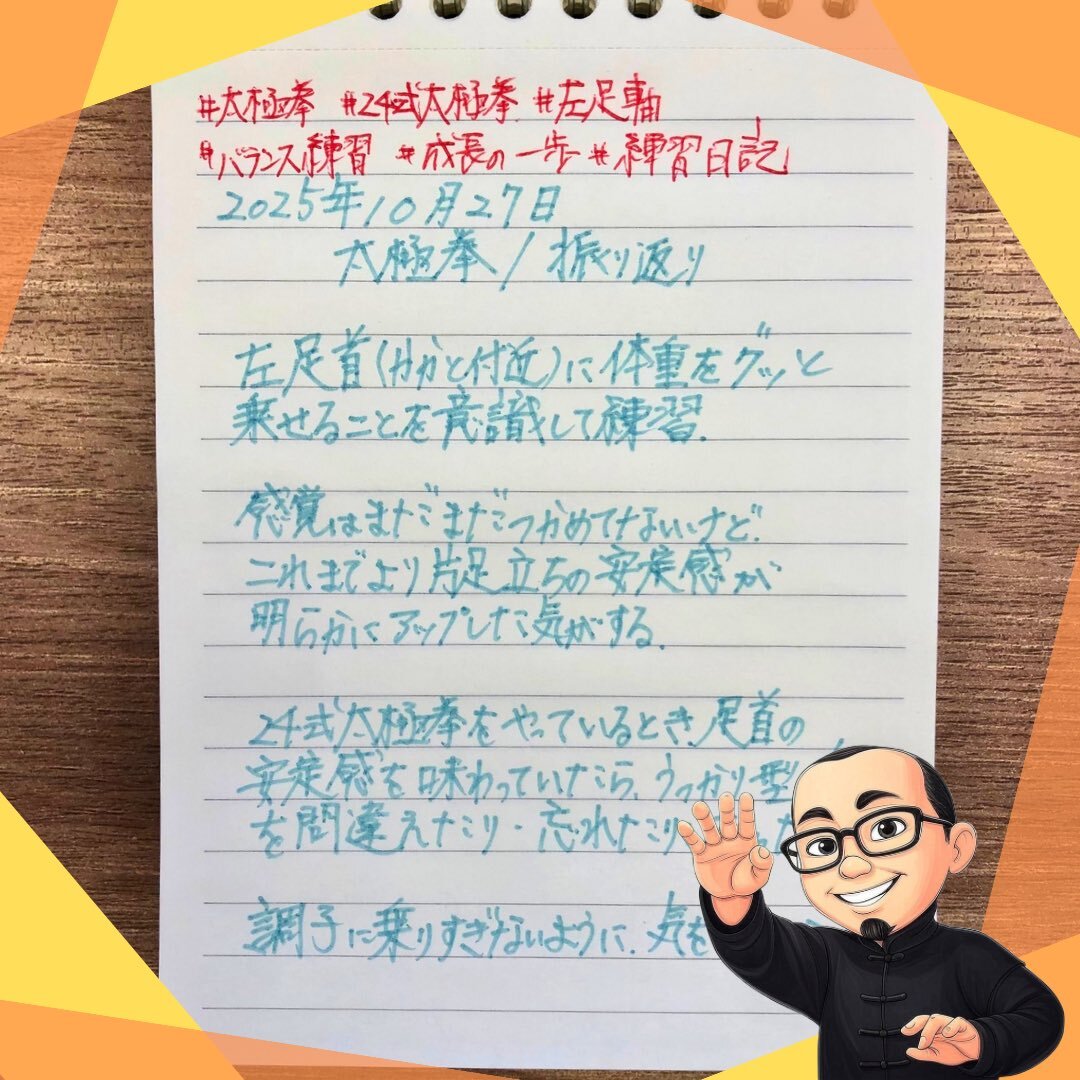 #太極拳 #24式太極拳 #左足軸
#バランス練習 #成長の一歩 #練習日記
2025年10月27日
太極拳/振り返り
左足首(かかと付近)に体重をグッと
乗せることを意識して練習.
感覚はまだまだつかめてないけど.
これまでより片足立ちの安定感が
明らかにアップした気がする.
24式太極拳をやっているとき,足首の
安定感を味わっていたら,うっかり型
を間違えたり・忘れたり
調子に乗りすぎないように.気を